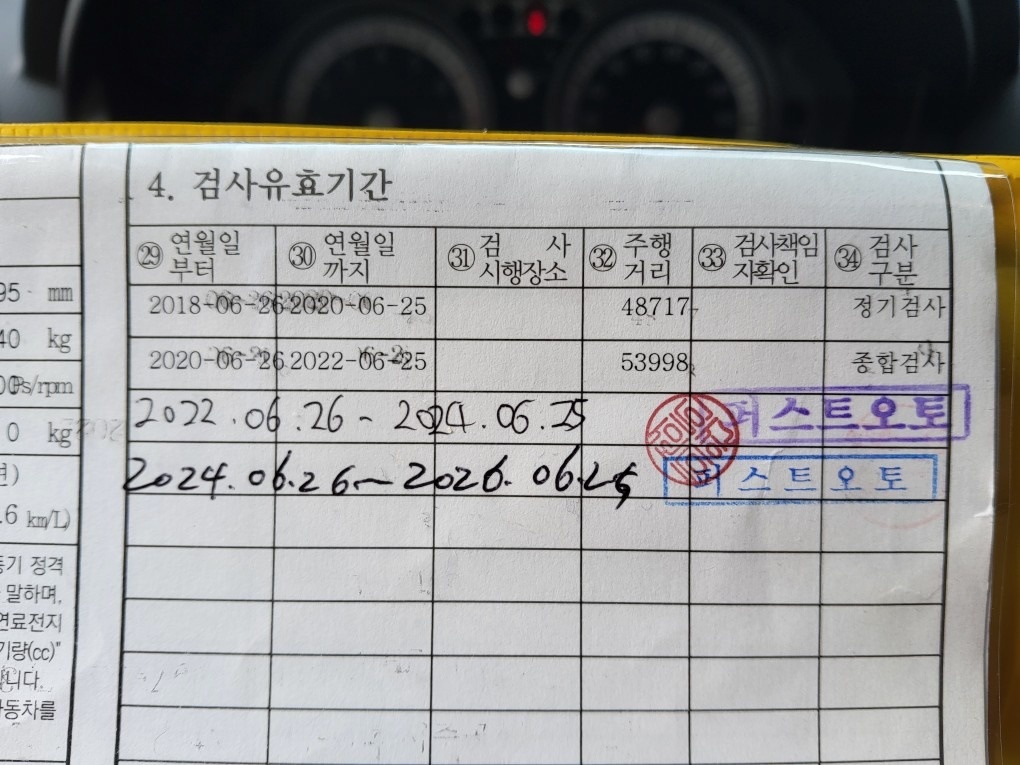 4. 검사유효기간
㉙ 연월일 부터 ㉚ 연월일 까지 ㉛ 검 사 시행장소 ㉜ 주행 거리 ㉝ 검사책임 자확인 ㉞ 검사 구분
2018-06-26 2020-06-25 48717 정기검사
2020-06-26 2022-06-25 53998 종합검사
2022.06.26 ~ 2024.06.25 퍼스트오토
2024.06.26 ~ 2026.06.25 퍼스트오토
95 mm
40 kg
Ps/rpm
0 kg
.6 km/L)
정격
말하며,
연료전지
기량(cc)"
니다.
동차를